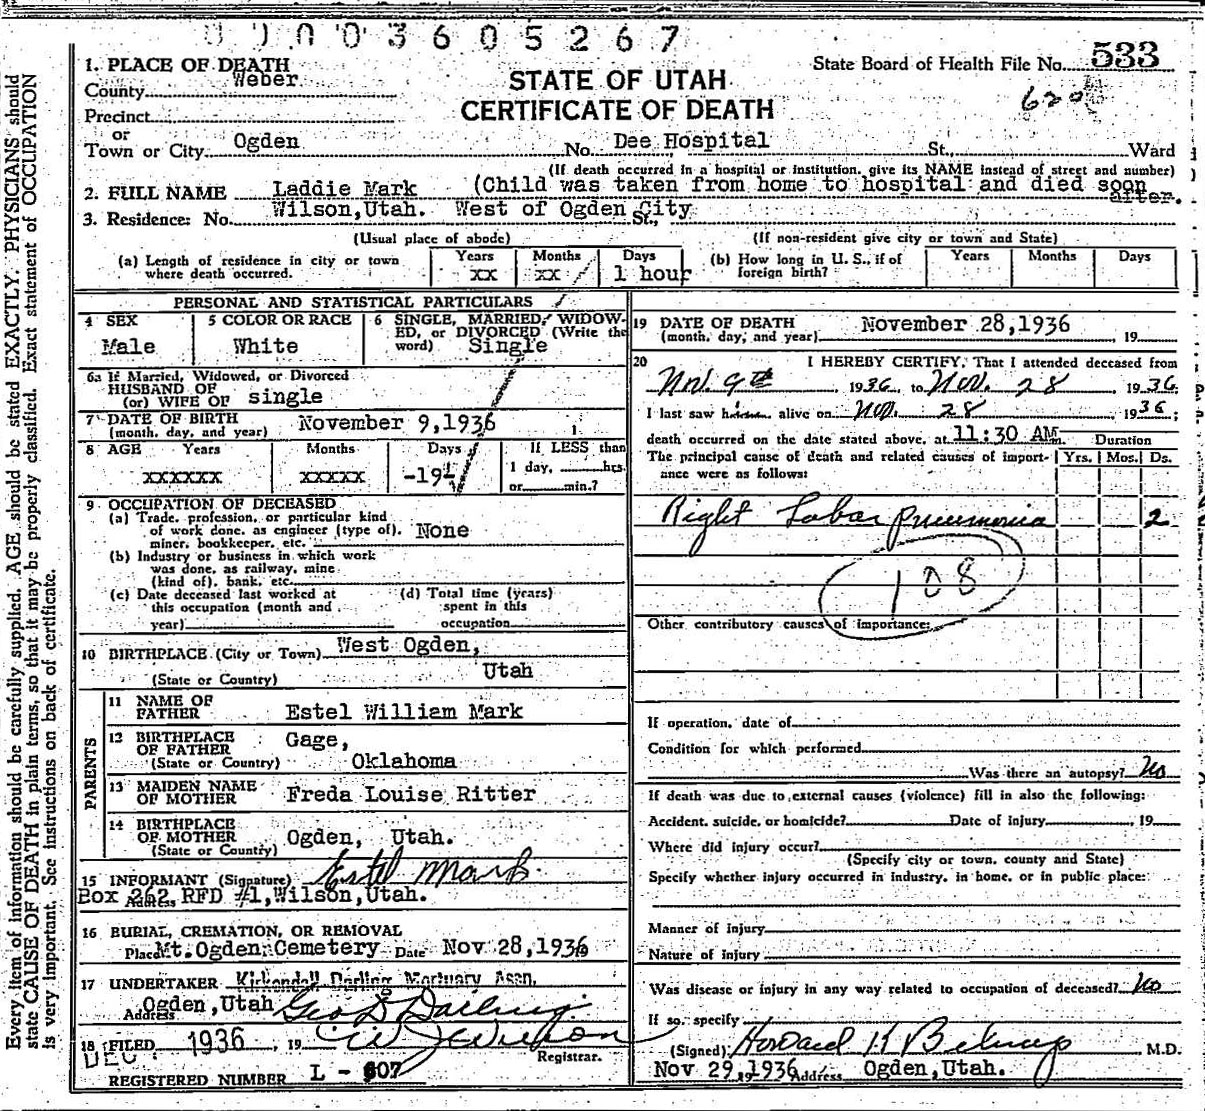 0 0 0 0 3 6 0 5 2 6 7
1. PLACE OF DEATH
County Weber
STATE OF UTAH
CERTIFICATE OF DEATH
State Board of Health File No. 533
Precinct
or
Town or City Ogden No. Dee Hospital St., Ward
(If death occurred in a hospital or institution, give its NAME instead of street and number)
2. FULL NAME Laddie Mark (Child was taken from home to hospital and died soon
after.
3. Residence: No. Wilson,Utah. West of Ogden City St.,
(Usual place of abode) (If non-resident give city or town and State)
(a) Length of residence in city or town where death occurred. Years xx Months xx Days 1 hour
(b) How long in U. S., if of foreign birth? Years Months Days
PERSONAL AND STATISTICAL PARTICULARS
4 SEX Male
5 COLOR OR RACE White
6 SINGLE, MARRIED, WIDOWED, or DIVORCED (Write the word) Single
6a If Married, Widowed, or Divorced
HUSBAND OF
(or) WIFE OF single
7 DATE OF BIRTH
(month, day, and year) November 9,1936
8 AGE Years xxxxxx Months xxxxx Days -19- If LESS than
1 day, hrs.
or min.?
9 OCCUPATION OF DECEASED
(a) Trade, profession, or particular kind
of work done, as engineer (type of), None
miner, bookkeeper, etc.
(b) Industry or business in which work
was done, as railway, mine
(kind of), bank, etc.
(c) Date deceased last worked at
this occupation (month and
year)
(d) Total time (years)
spent in this
occupation
10 BIRTHPLACE (City or Town) West Ogden,
(State or Country) Utah
PARENTS
11 NAME OF
FATHER Estel William Mark
12 BIRTHPLACE
OF FATHER Gage,
(State or Country) Oklahoma
13 MAIDEN NAME
OF MOTHER Freda Louise Ritter
14 BIRTHPLACE
OF MOTHER Ogden, Utah.
(State or Country)
15 INFORMANT (Signature) Estel Mark
Address Box 262 RFD #1,Wilson,Utah.
16 BURIAL, CREMATION, OR REMOVAL
Place Mt.Ogden Cemetery Date Nov 28,1936
17 UNDERTAKER Kirkendall Darling Mortuary Assn.
Address Ogden,Utah Geo D Darling
18 FILED DEC 1936, 19 Registrar.
REGISTERED NUMBER L - 607
19 DATE OF DEATH
(month, day, and year) November 28,1936, 19
20 I HEREBY CERTIFY, That I attended deceased from
Nov. 9th 1936, to Nov. 28 1936
I last saw him alive on Nov. 28, 1936;
death occurred on the date stated above, at 11:30 AM. Duration
The principal cause of death and related causes of importance were as follows: Yrs. Mos. Ds.
Right Lobar Pneumonia 2
108
Other contributory causes of importance:
If operation, date of
Condition for which performed
Was there an autopsy? No
If death was due to external causes (violence) fill in also the following:
Accident, suicide, or homicide? Date of injury, 19
Where did injury occur?
(Specify city or town, county and State)
Specify whether injury occurred in industry, in home, or in public place:
Manner of injury
Nature of injury
Was disease or injury in any way related to occupation of deceased? No
If so, specify
(Signed) Howard K M.D.
Nov 29, 1936 Address Ogden,Utah.
Every item of information should be carefully supplied. AGE should be stated EXACTLY. PHYSICIANS should
state CAUSE OF DEATH in plain terms, so that it may be properly classified. Exact statement of OCCUPATION
is very important. See instructions on back of certificate.